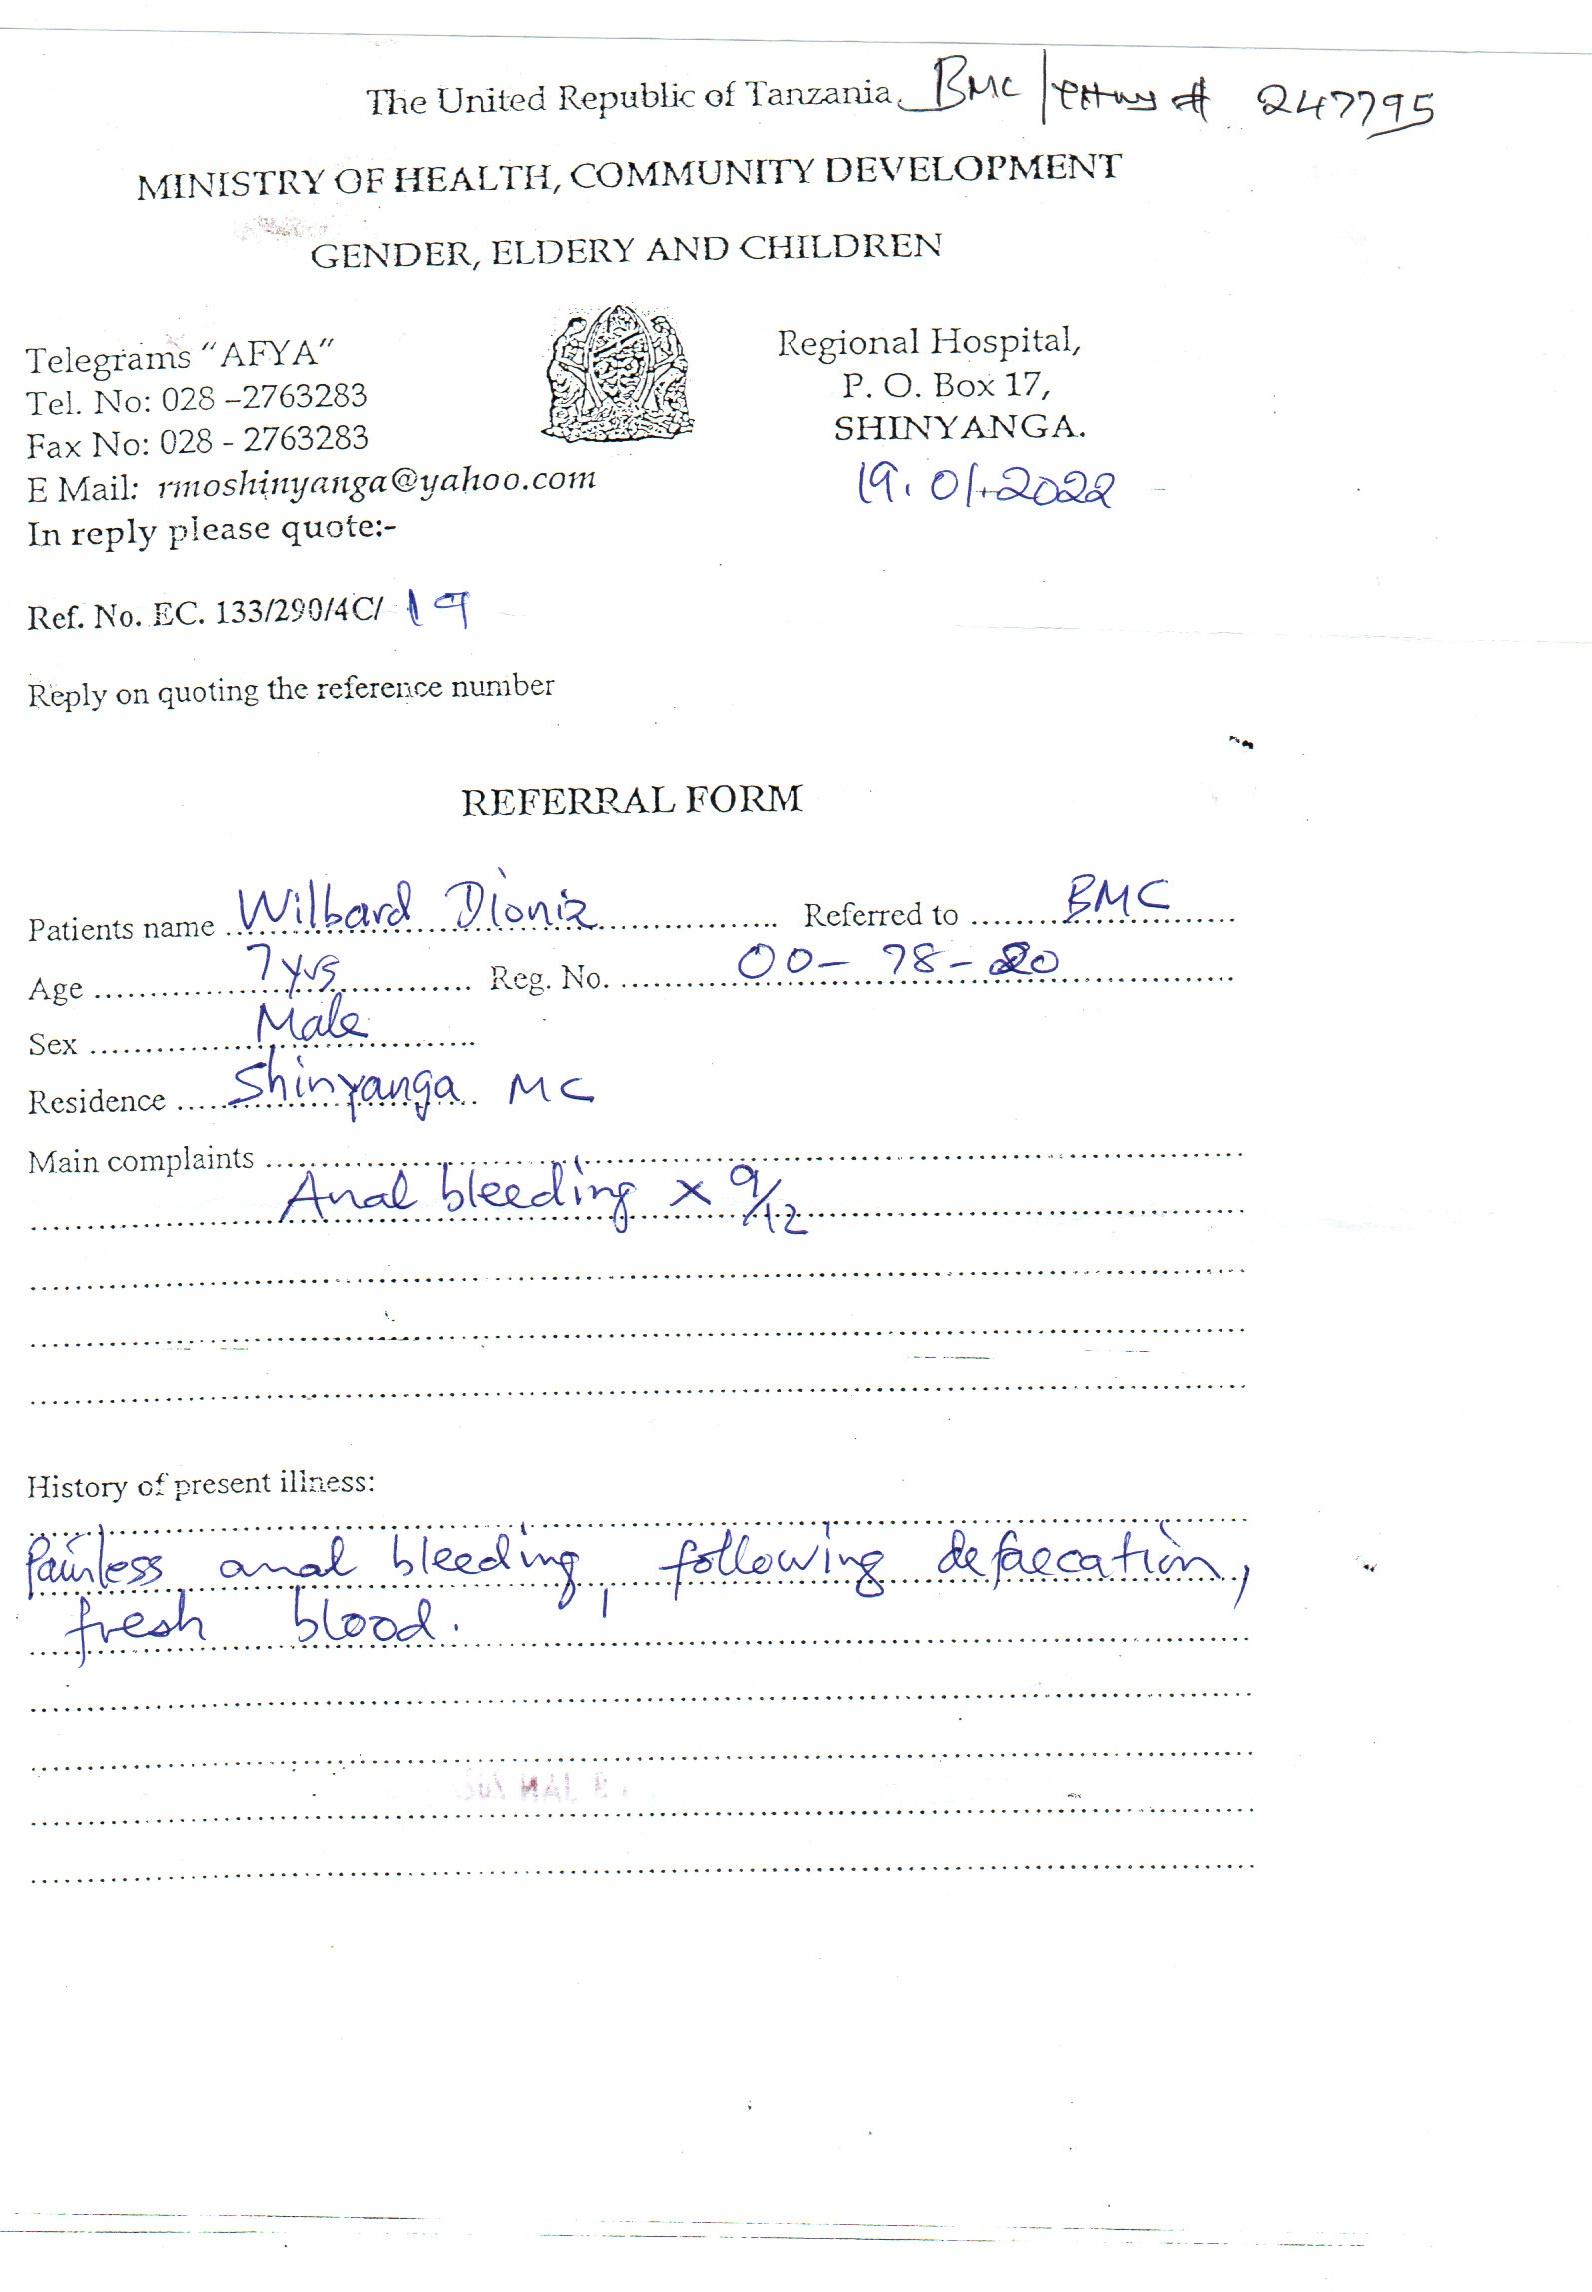 The United Republic of Tanzania BMC / # 247795
MINISTRY OF HEALTH, COMMUNITY DEVELOPMENT
GENDER, ELDERY AND CHILDREN
Telegrams "AFYA"
Tel. No: 028 –2763283
Fax No: 028 - 2763283
E Mail: rmoshinyanga@yahoo.com
In reply please quote:-
Regional Hospital,
P. O. Box 17,
SHINYANGA.
19.01.2022
Ref. No. EC. 133/290/4C/ 19
Reply on quoting the reference number
REFERRAL FORM
Patients name Wilbard Dioniz Referred to BMC
Age 7yrs Reg. No. 00-78-80
Sex Male
Residence Shinyanga MC
Main complaints
Anal bleeding x 9/12
History of present illness:
Painless anal bleeding, following defaecation,
fresh blood.